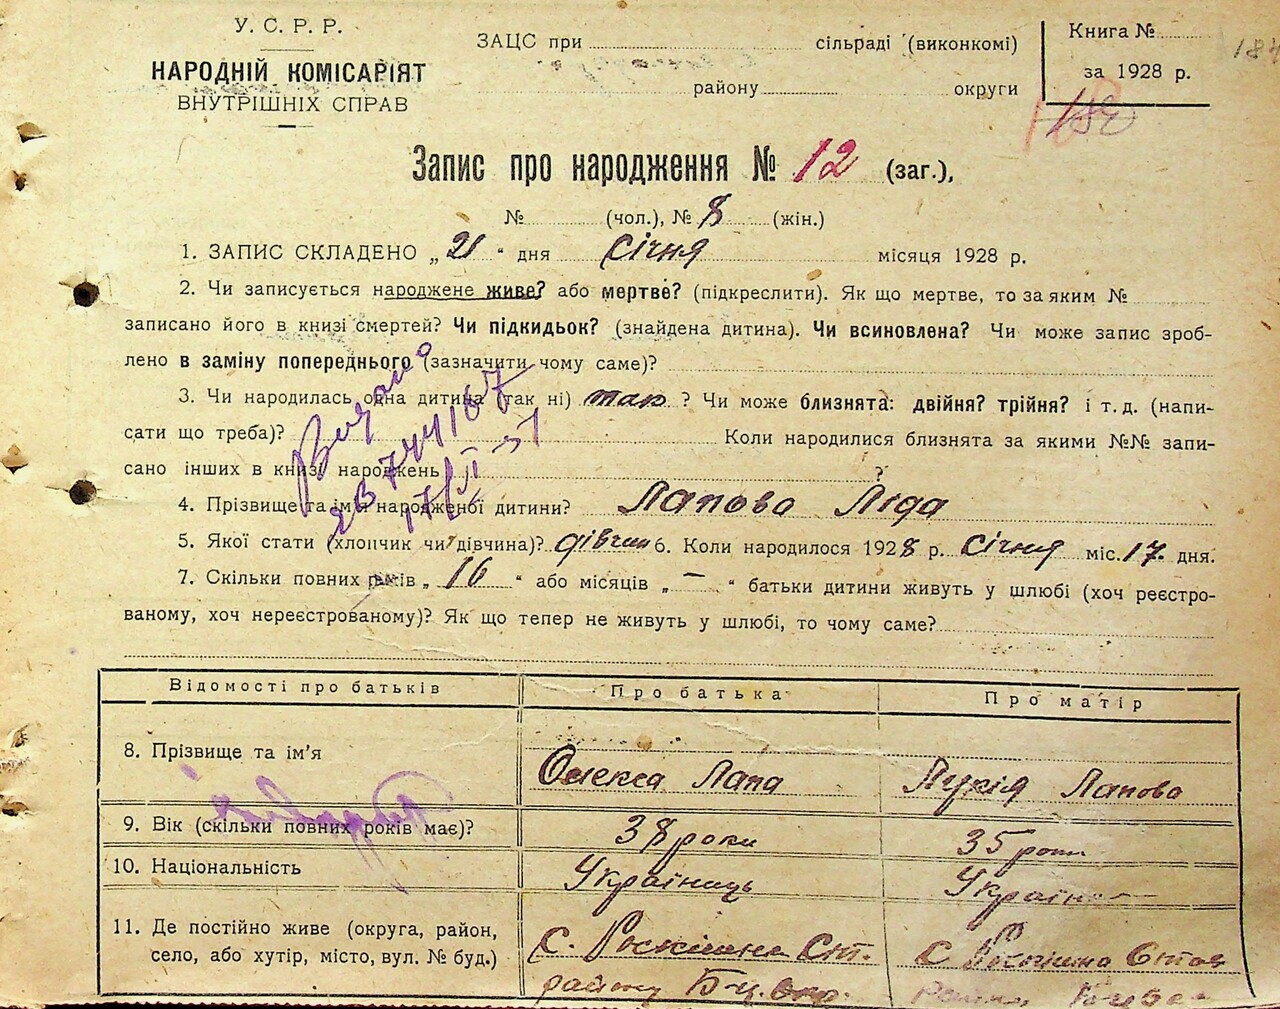 У. С. Р. Р.
НАРОДНІЙ КОМІСАРІЯТ
ВНУТРІШНІХ СПРАВ
ЗАЦС при сільраді (виконкомі)
району округи
Книга №
за 1928 р.
184
Запис про народження № 12 (заг.),
№ (чол.), № 8 (жін.)
1. ЗАПИС СКЛАДЕНО „21“ дня січня місяця 1928 р.
2. Чи записується народжене живе? або мертве? (підкреслити). Як що мертве, то за яким №
записано його в книзі смертей? Чи підкидьок? (знайдена дитина). Чи всиновлена? Чи може запис зроб-
лено в заміну попереднього (зазначити чому саме)?
3. Чи народилась одна дитина (так ні) так ? Чи може близнята: двійня? трійня? і т. д. (напи-
сати що треба)? Коли народилися близнята за якими №№ запи-
сано інших в книзі народжень ?
4. Прізвище та ім'я народженої дитини? Лапова Ліда
5. Якої стати (хлопчик чи дівчина)? дівчин 6. Коли народилося 1928 р. січня міс. 17. дня.
7. Скільки повних років „16“ або місяців „–“ батьки дитини живуть у шлюбі (хоч реєстро-
ваному, хоч нереєстрованому)? Як що тепер не живуть у шлюбі, то чому саме?
Відомості про батьків Про батька Про матір
8. Прізвище та ім'я Олекса Лапа Лукія Лапова
9. Вік (скільки повних років має)? 38 роки 35 роки
10. Національність Українець Україн
11. Де постійно живе (округа, район,
село, або хутір, місто, вул. № буд.)
с. Роскішна Ст.
району Б-ц. окр.
с Роскішна Став